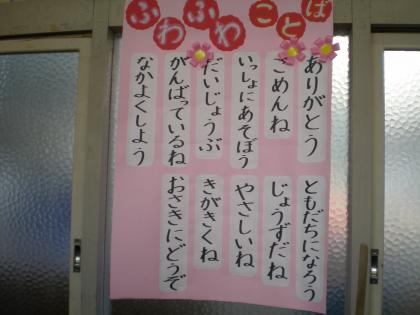 ふわふわことば
ありがとう
ともだちになろう
ごめんね
じょうずだね
いっしょにあそぼう
やさしいね
だいじょうぶ
きがきくね
がんばっているね
おさきにどうぞ
なかよくしよう